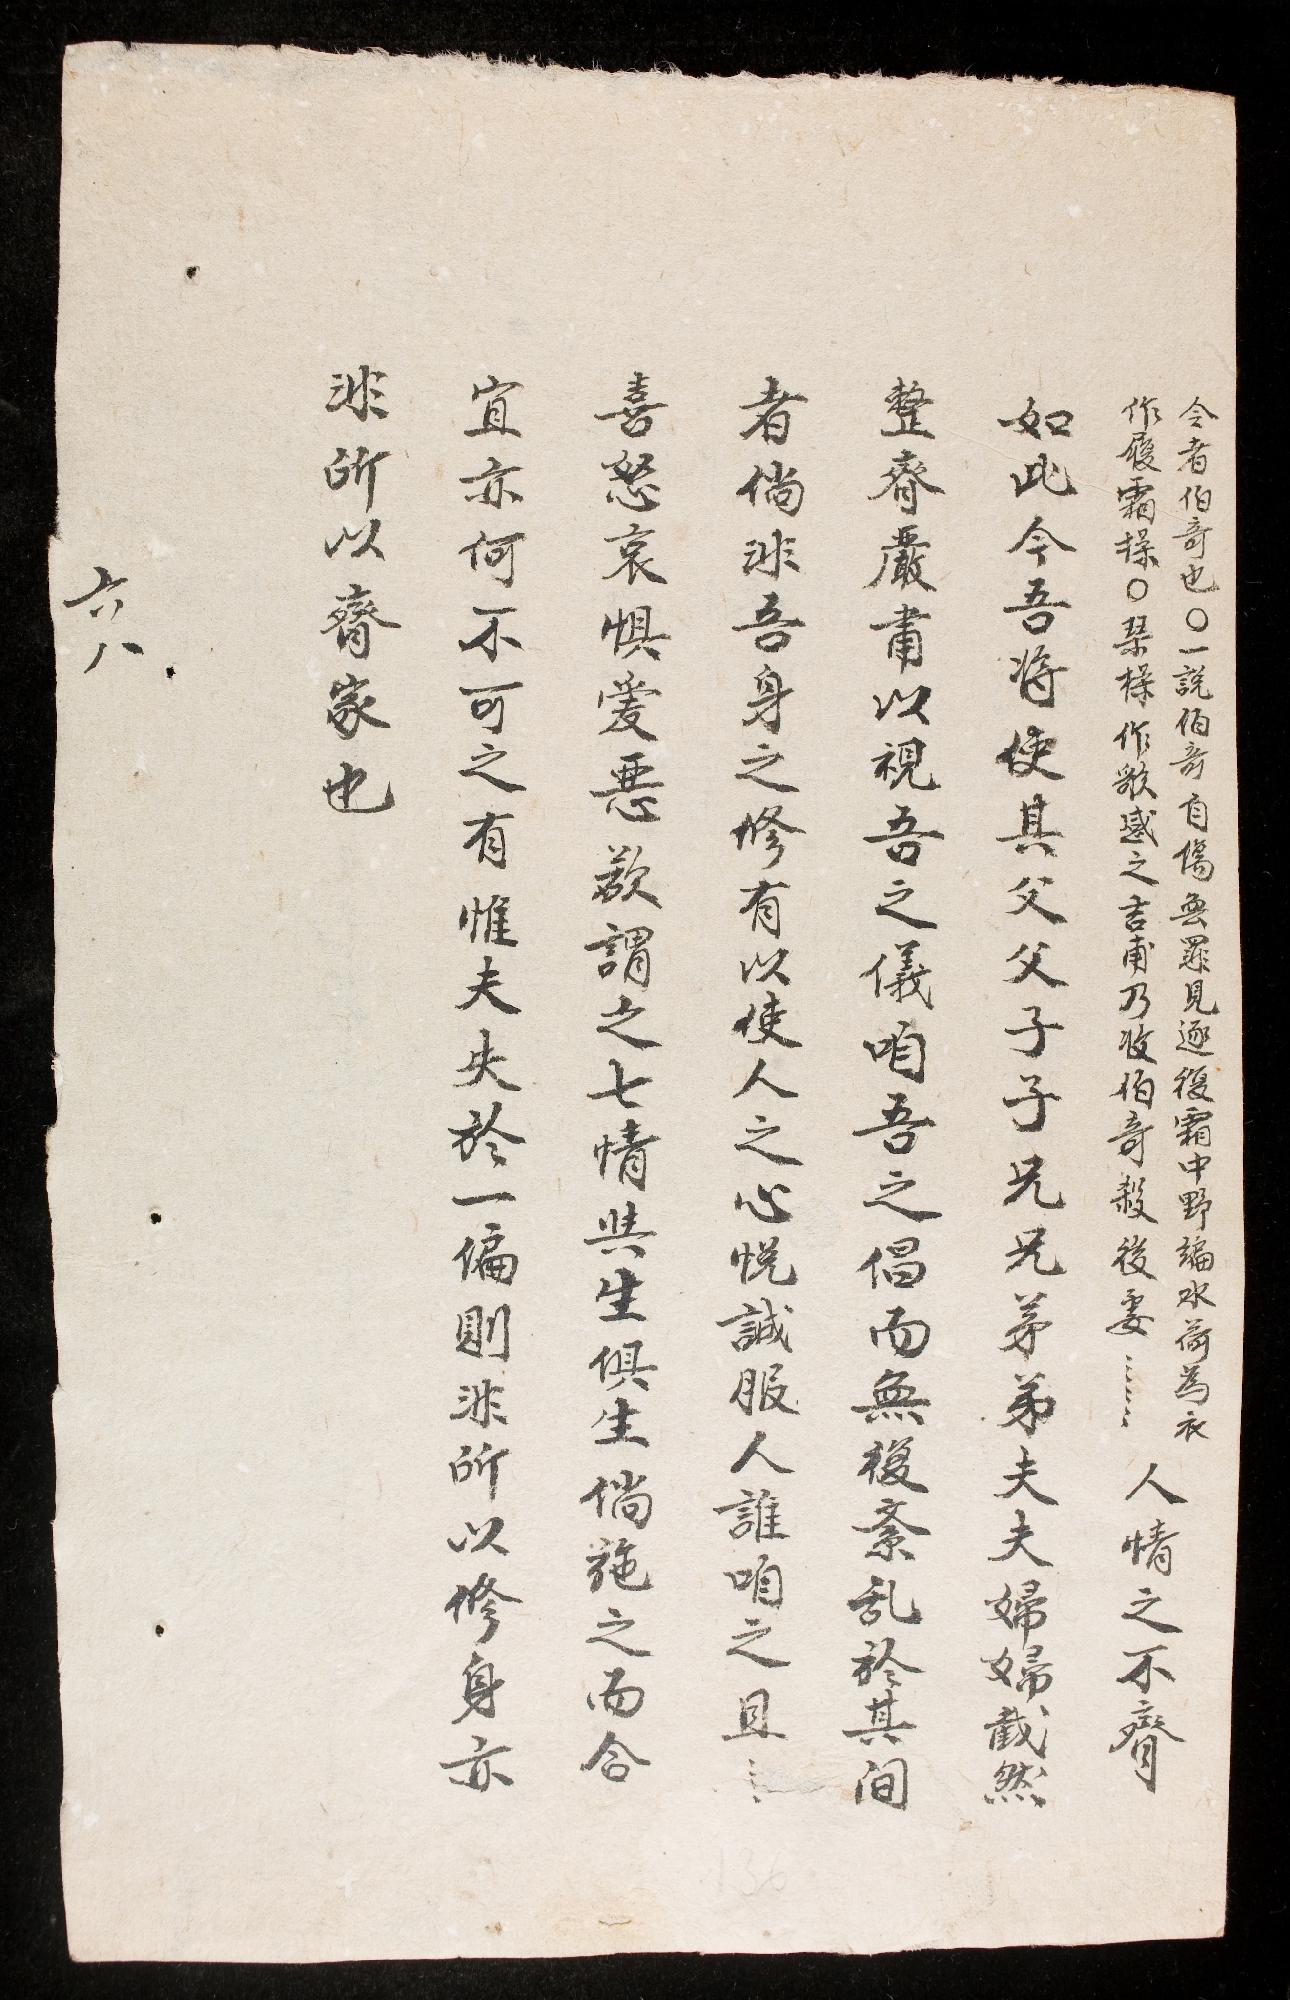 令者伯奇也〇一說伯奇自傷無罪見逐履霜中野編水荷為衣
作履霜操〇琴操作歌感之吉甫乃收伯奇殺後妻
人情之不齊
如此今吾將使其父父子子兄兄弟弟夫夫婦婦截然
整齊嚴肅以視吾之儀咱吾之倡而無復紊乱於其间
者倘非吾身之修有以使人之心悅誠服人誰咱之且
喜怒哀惧爱惡欲謂之七情与生俱生倘施之而合
宜亦何不可之有惟夫失於一偏則非所以修身亦
非所以齊家也
六八
136